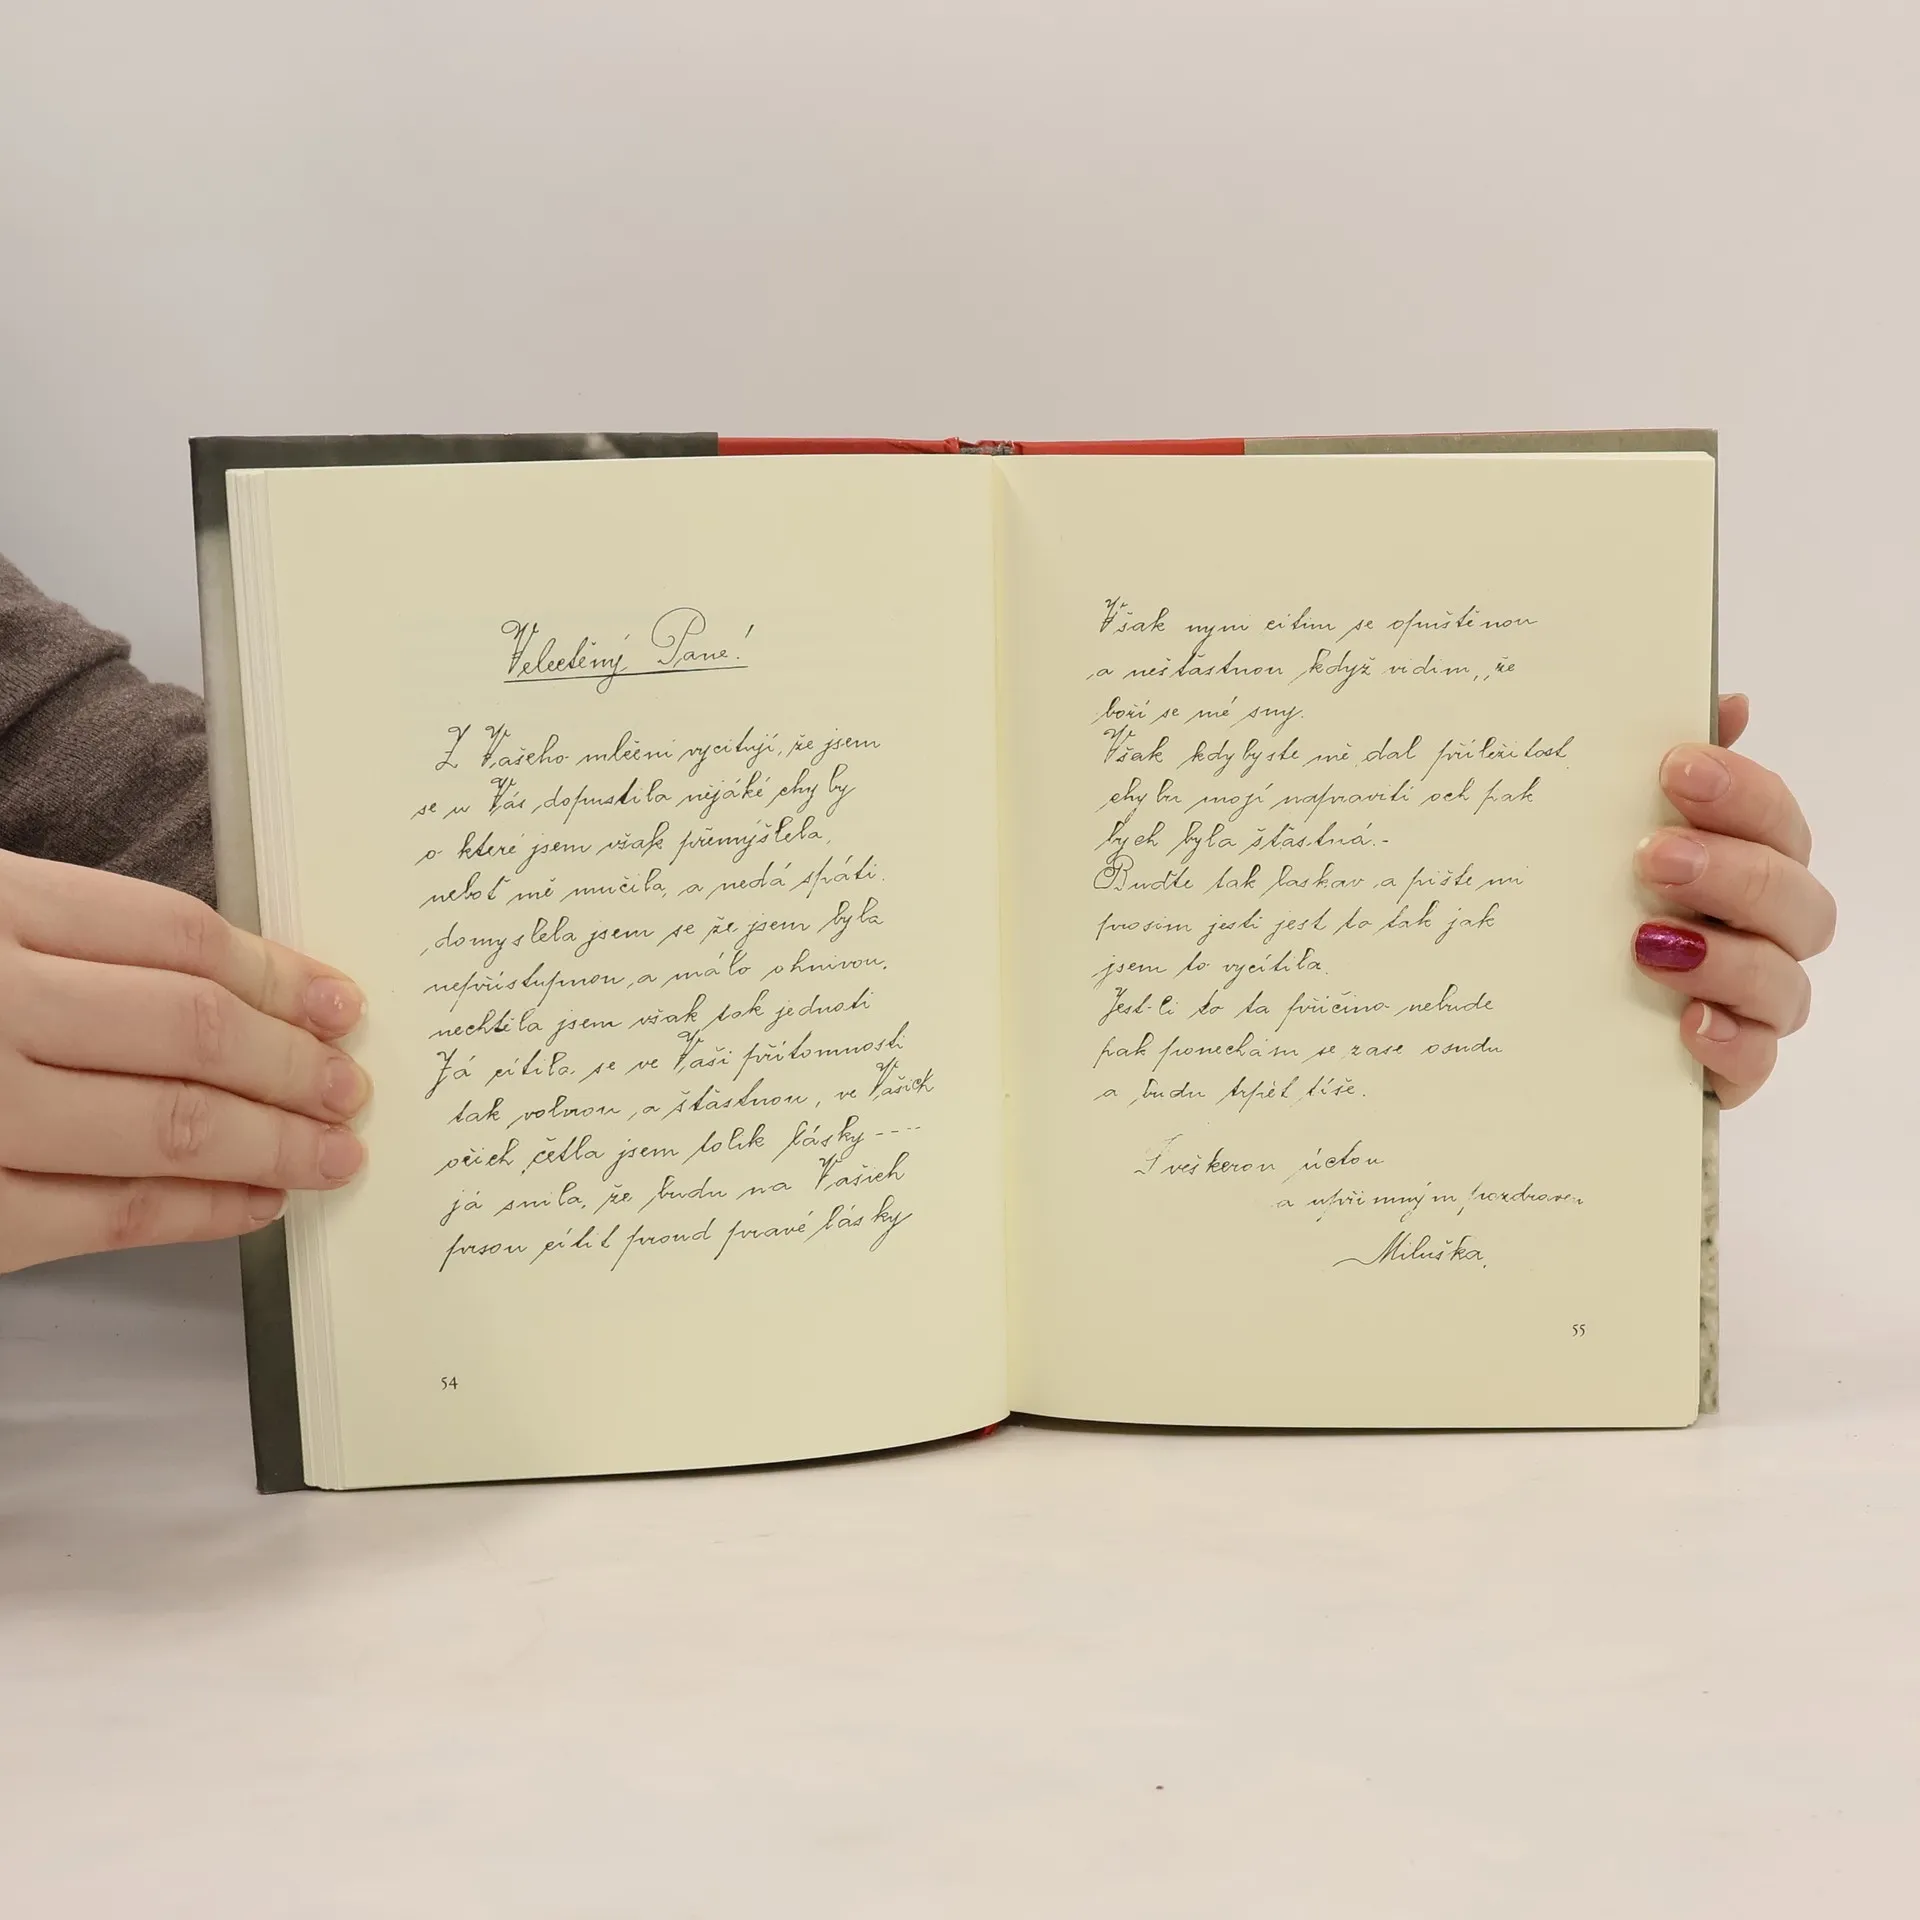 Velectěný Pane!
Z Vašeho mlčení vycítuji, že jsem
se u Vás dopustila nějáké chyby
o které jsem však přemýšlela,
neboť mě mučila, a nedá spáti.
domyslela jsem se že jsem byla
nepřístupnou, a málo ohnivou,
nechtěla jsem však tak jednati
Já cítila se ve Vaši přítomnosti
tak volnou, a šťastnou, ve Vašich
očich četla jsem tolik lásky ----
já snila, že budu na Vašich
prsou cítit proud pravé lásky
54
Však nyni citim se opuštěnou
a nešťastnou když vidim, že
boří se mé sny.
Však kdybyste mě dal příležitost
chybu mojí napraviti och pak
bych byla šťastná.-
Buďte tak laskav a pište mi
prosim jesti jest to tak jak
jsem to vycítila.
Jest-li to ta příčina nebude
pak ponechám se zase osudu
a budu trpět tíše.
S veškerou úctou
a upřimným pozdraven
Miluška.
55